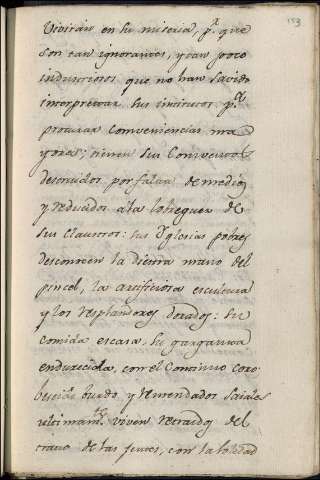 153
Viviran en su miseria, p.ʳ que
son tan ignorantes, y tan poco
industriosos que no han savido
interpretar sus institutos p.ᵃ
procurar conveniencias ma
yores; tienen sus Conventos
desnudos por falta de medios
y reducidos a la lobreguez de
sus Claustros: sus Yglesias pobres
desconocen la diestra mano del
pincel, la artificiosa escultura
y los resplandores dorados: su
comida escasa, su garganta
endurecida, con el Continuo coro
burdo y remendados saiales
ultimam.ᵗᵉ viven retraidos del
trato de las gentes, con la soledad